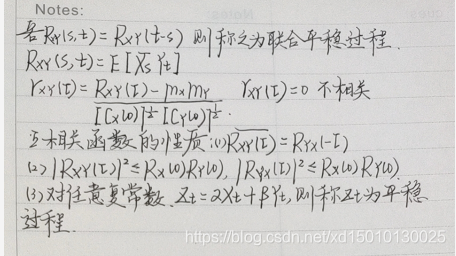 Notes:
若RXY(s,t)=RXY(t-s) 则称之为联合平稳过程.
RXY(s,t)=E[X̅sYt]
rXY(τ)=RXY(τ)-mXmY / [CX(0)]^½[CY(0)]^½. rXY(τ)=0 不相关
互相关函数的性质:(1)R̅X̅Y̅(τ)=RYX(-τ)
(2) |RXY(τ)|²≤RX(0)RY(0), |RYX(τ)|²≤RX(0)RY(0)
(3)对任意复常数. Zt=αXt+βYt,则称Zt为平稳
过程.
https://blog.csdn.net/xd15010130025